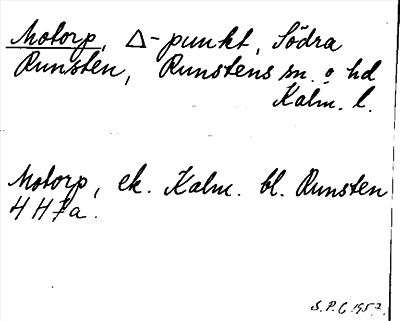 Motorp, Δ-punkt, Södra
Runsten, Runstens sn. o hd
Kalm. l.
Motorp, ek. Kalm. bl. Runsten
4 H 7a.
S.P.G. 1957.